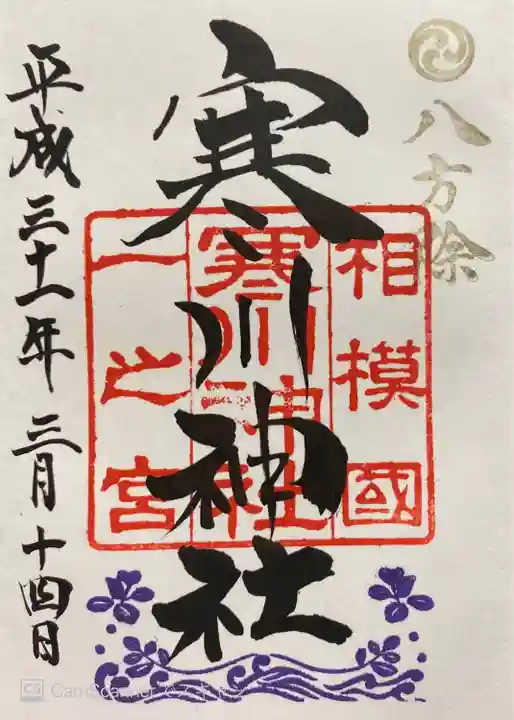 八方除
寒川神社
相模國
寒川神社
一之宮
平成三十一年三月十四日
CS CamScanner